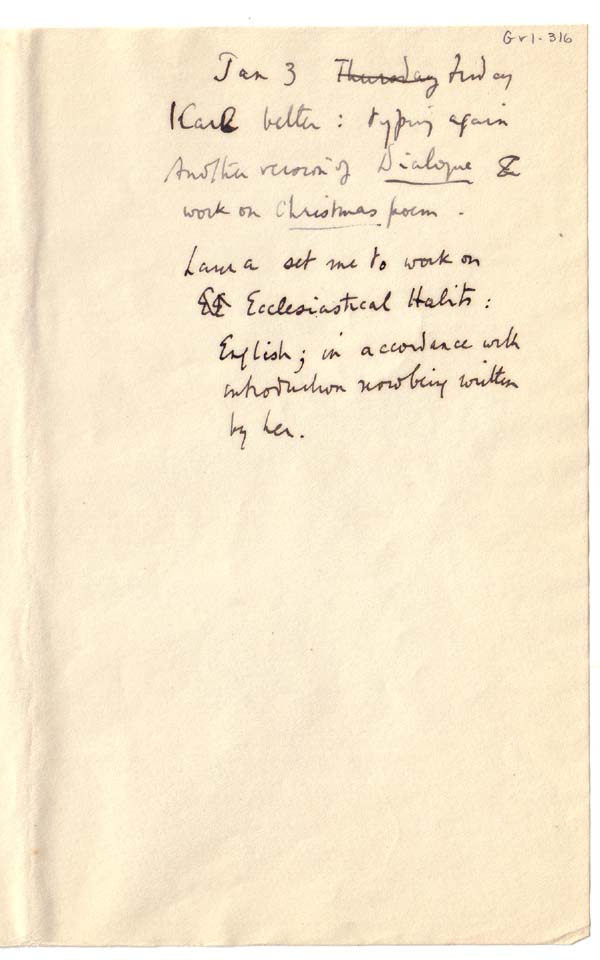 Gr1-316
Jan 3 Thursday Friday
Karl better : typing again
Another version of Dialogue &
work on Christmas poem .
Laura set me to work on
Ecclesiastical Habits :
English ; in accordance with
introduction now being written
by her .